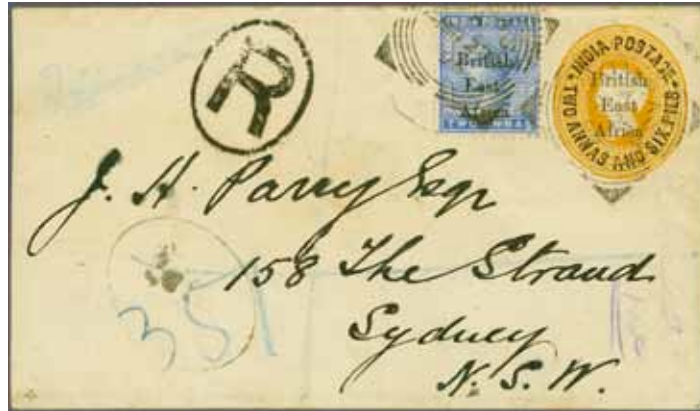 R
British
East
Africa
TWO ANNAS
INDIA POSTAGE
TWO ANNAS AND SIX PIES
British
East
Africa
J. H. Parry Esqr
158 The Strand
Sydney
N. S. W.
351